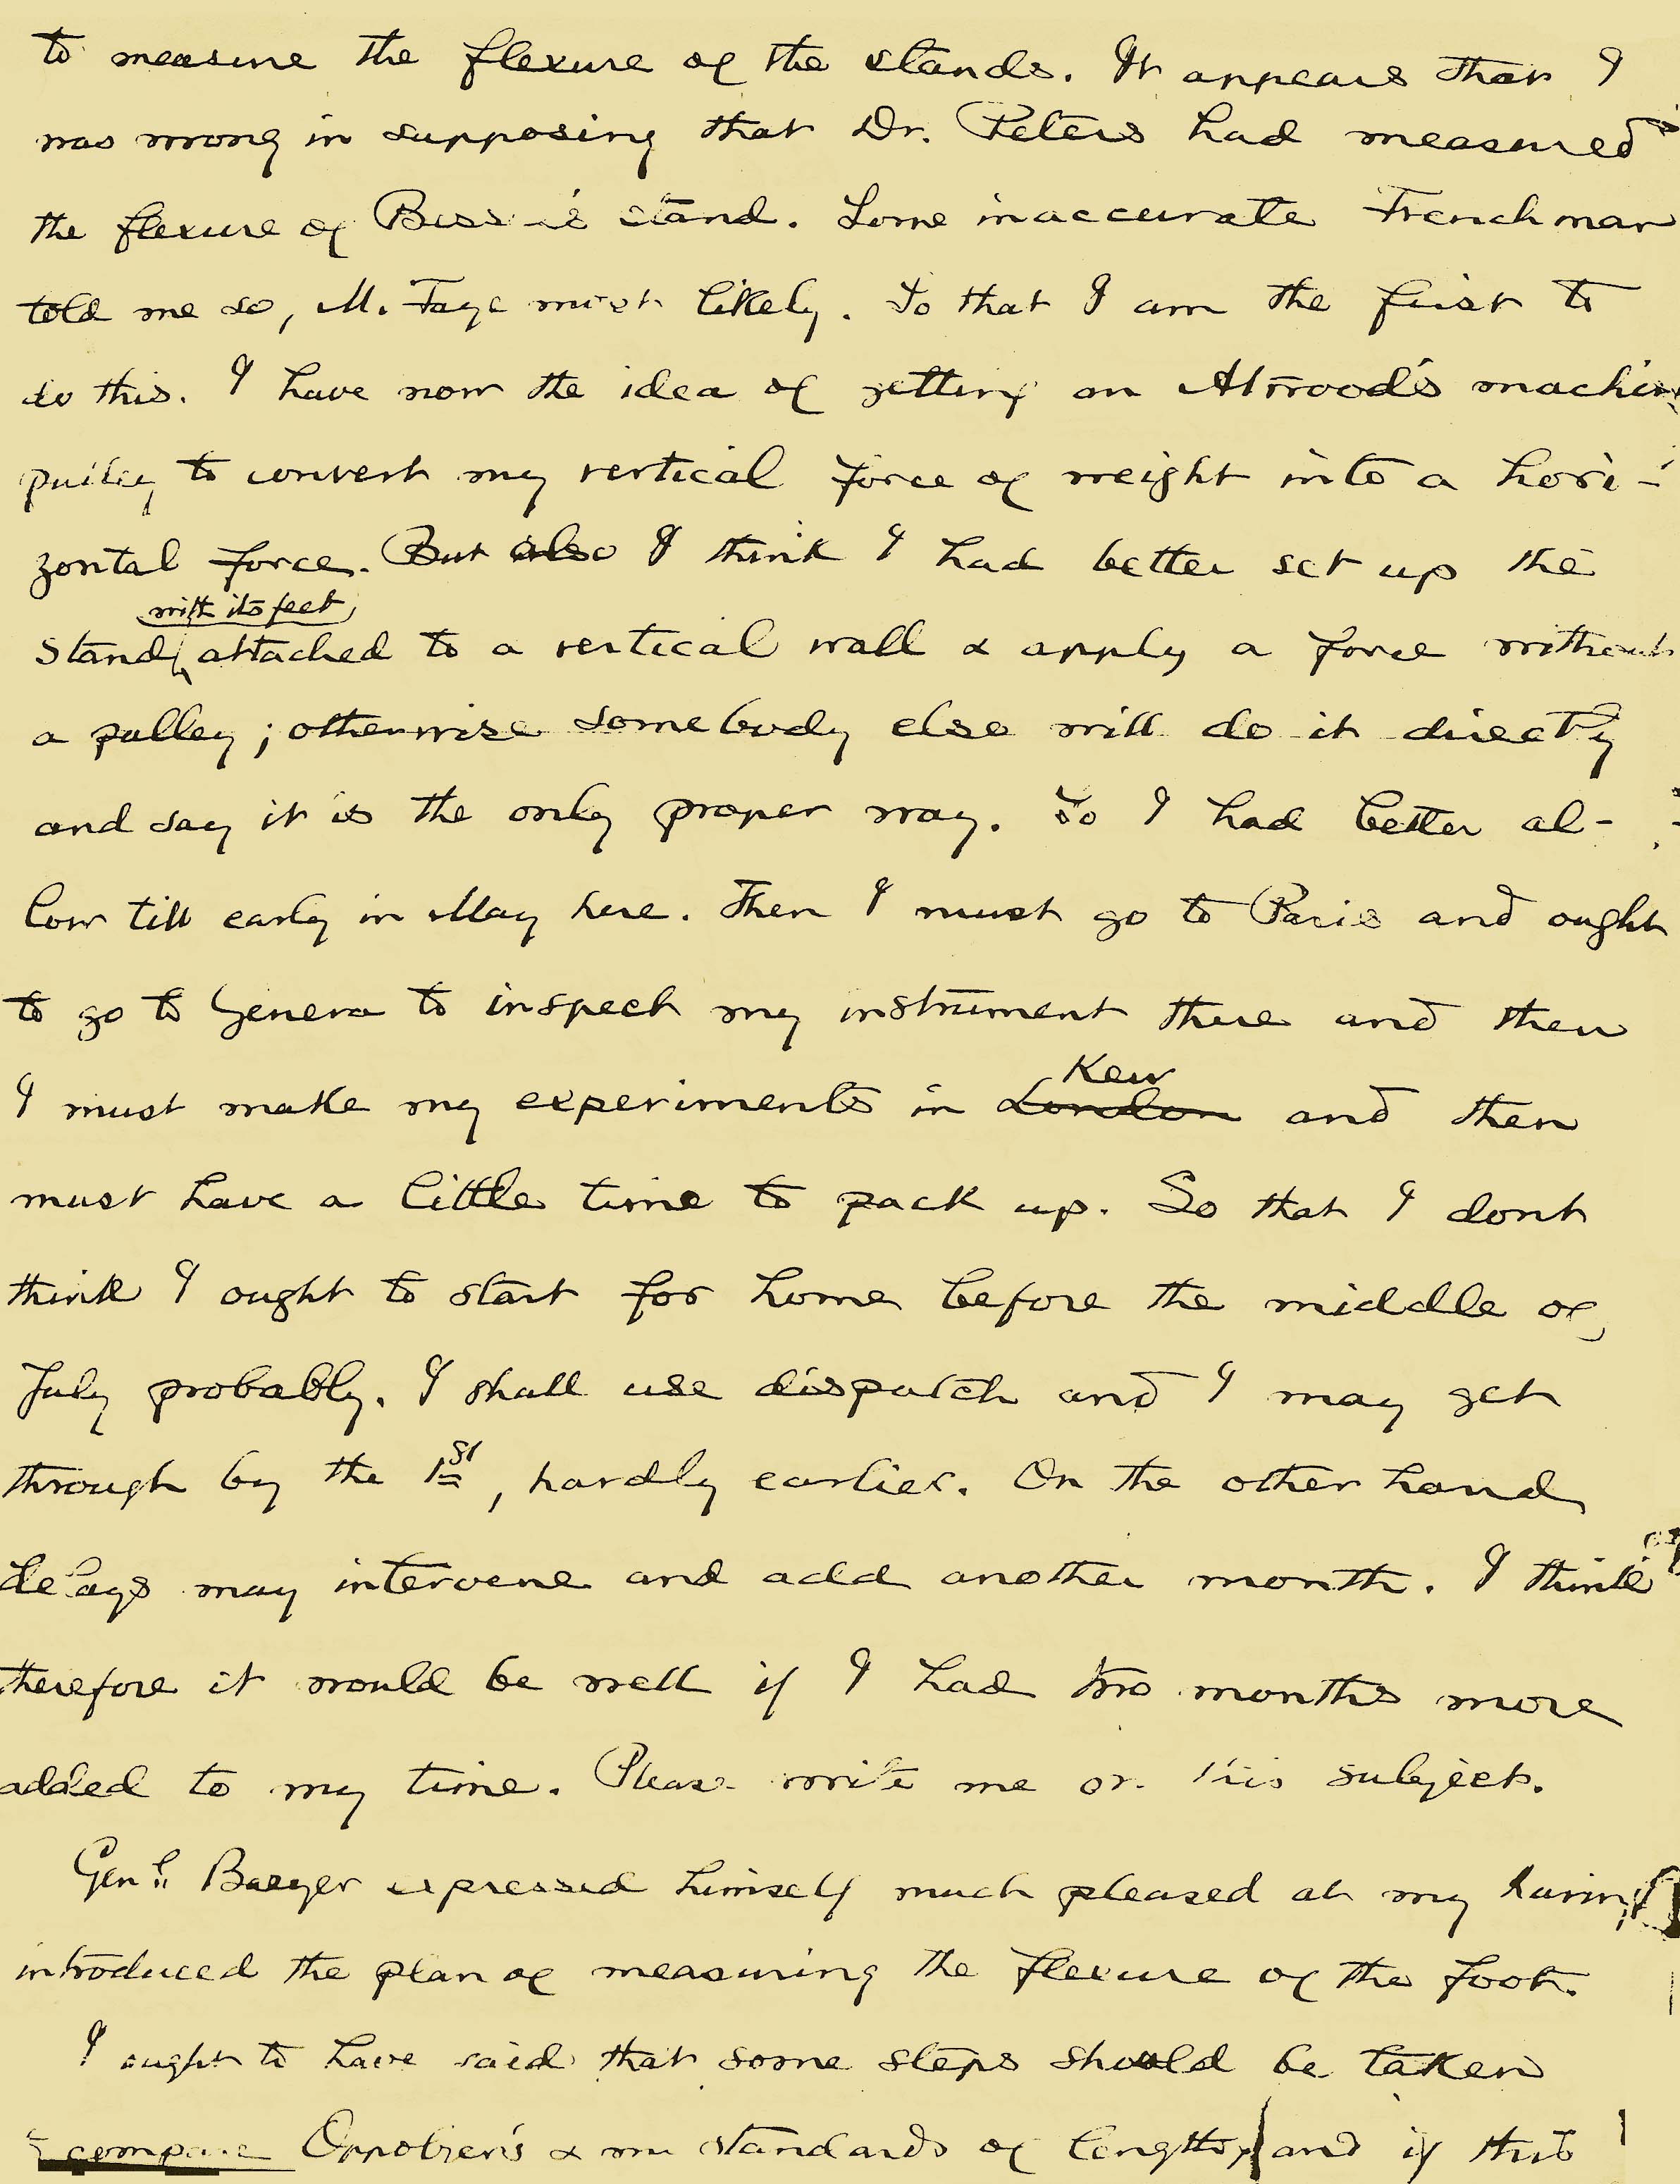 to measure the flexure of the stands. It appears that I
was wrong in supposing that Dr. Peters had measured
the flexure of Bessel's stand. Some inaccurate Frenchman
told me so, M. Faye most likely. So that I am the first to
do this. I have now the idea of getting an Atwood's machine
pulley to convert my vertical force of weight into a hori-
zontal force. But also I think I had better set up the
with its feet
stand attached to a vertical wall & apply a force without
a pulley; otherwise somebody else will do it directly
and say it is the only proper way. So I had better al-
low till early in May here. Then I must go to Paris and ought
to go to Geneva to inspect my instrument there and then
Kew
I must make my experiments in London and then
must have a little time to pack up. So that I dont
think I ought to start for home before the middle of
July probably. I shall use dispatch and I may get
through by the 1st, hardly earlier. On the other hand
delays may intervene and add another month. I think
therefore it would be well if I had two months more
added to my time. Please write me on this subject.
Genl. Baeyer expressed himself much pleased at my having
introduced the plan of measuring the flexure of the foot.
I ought to have said that some steps should be taken
compare Oppolzer's & my standards of length and if this